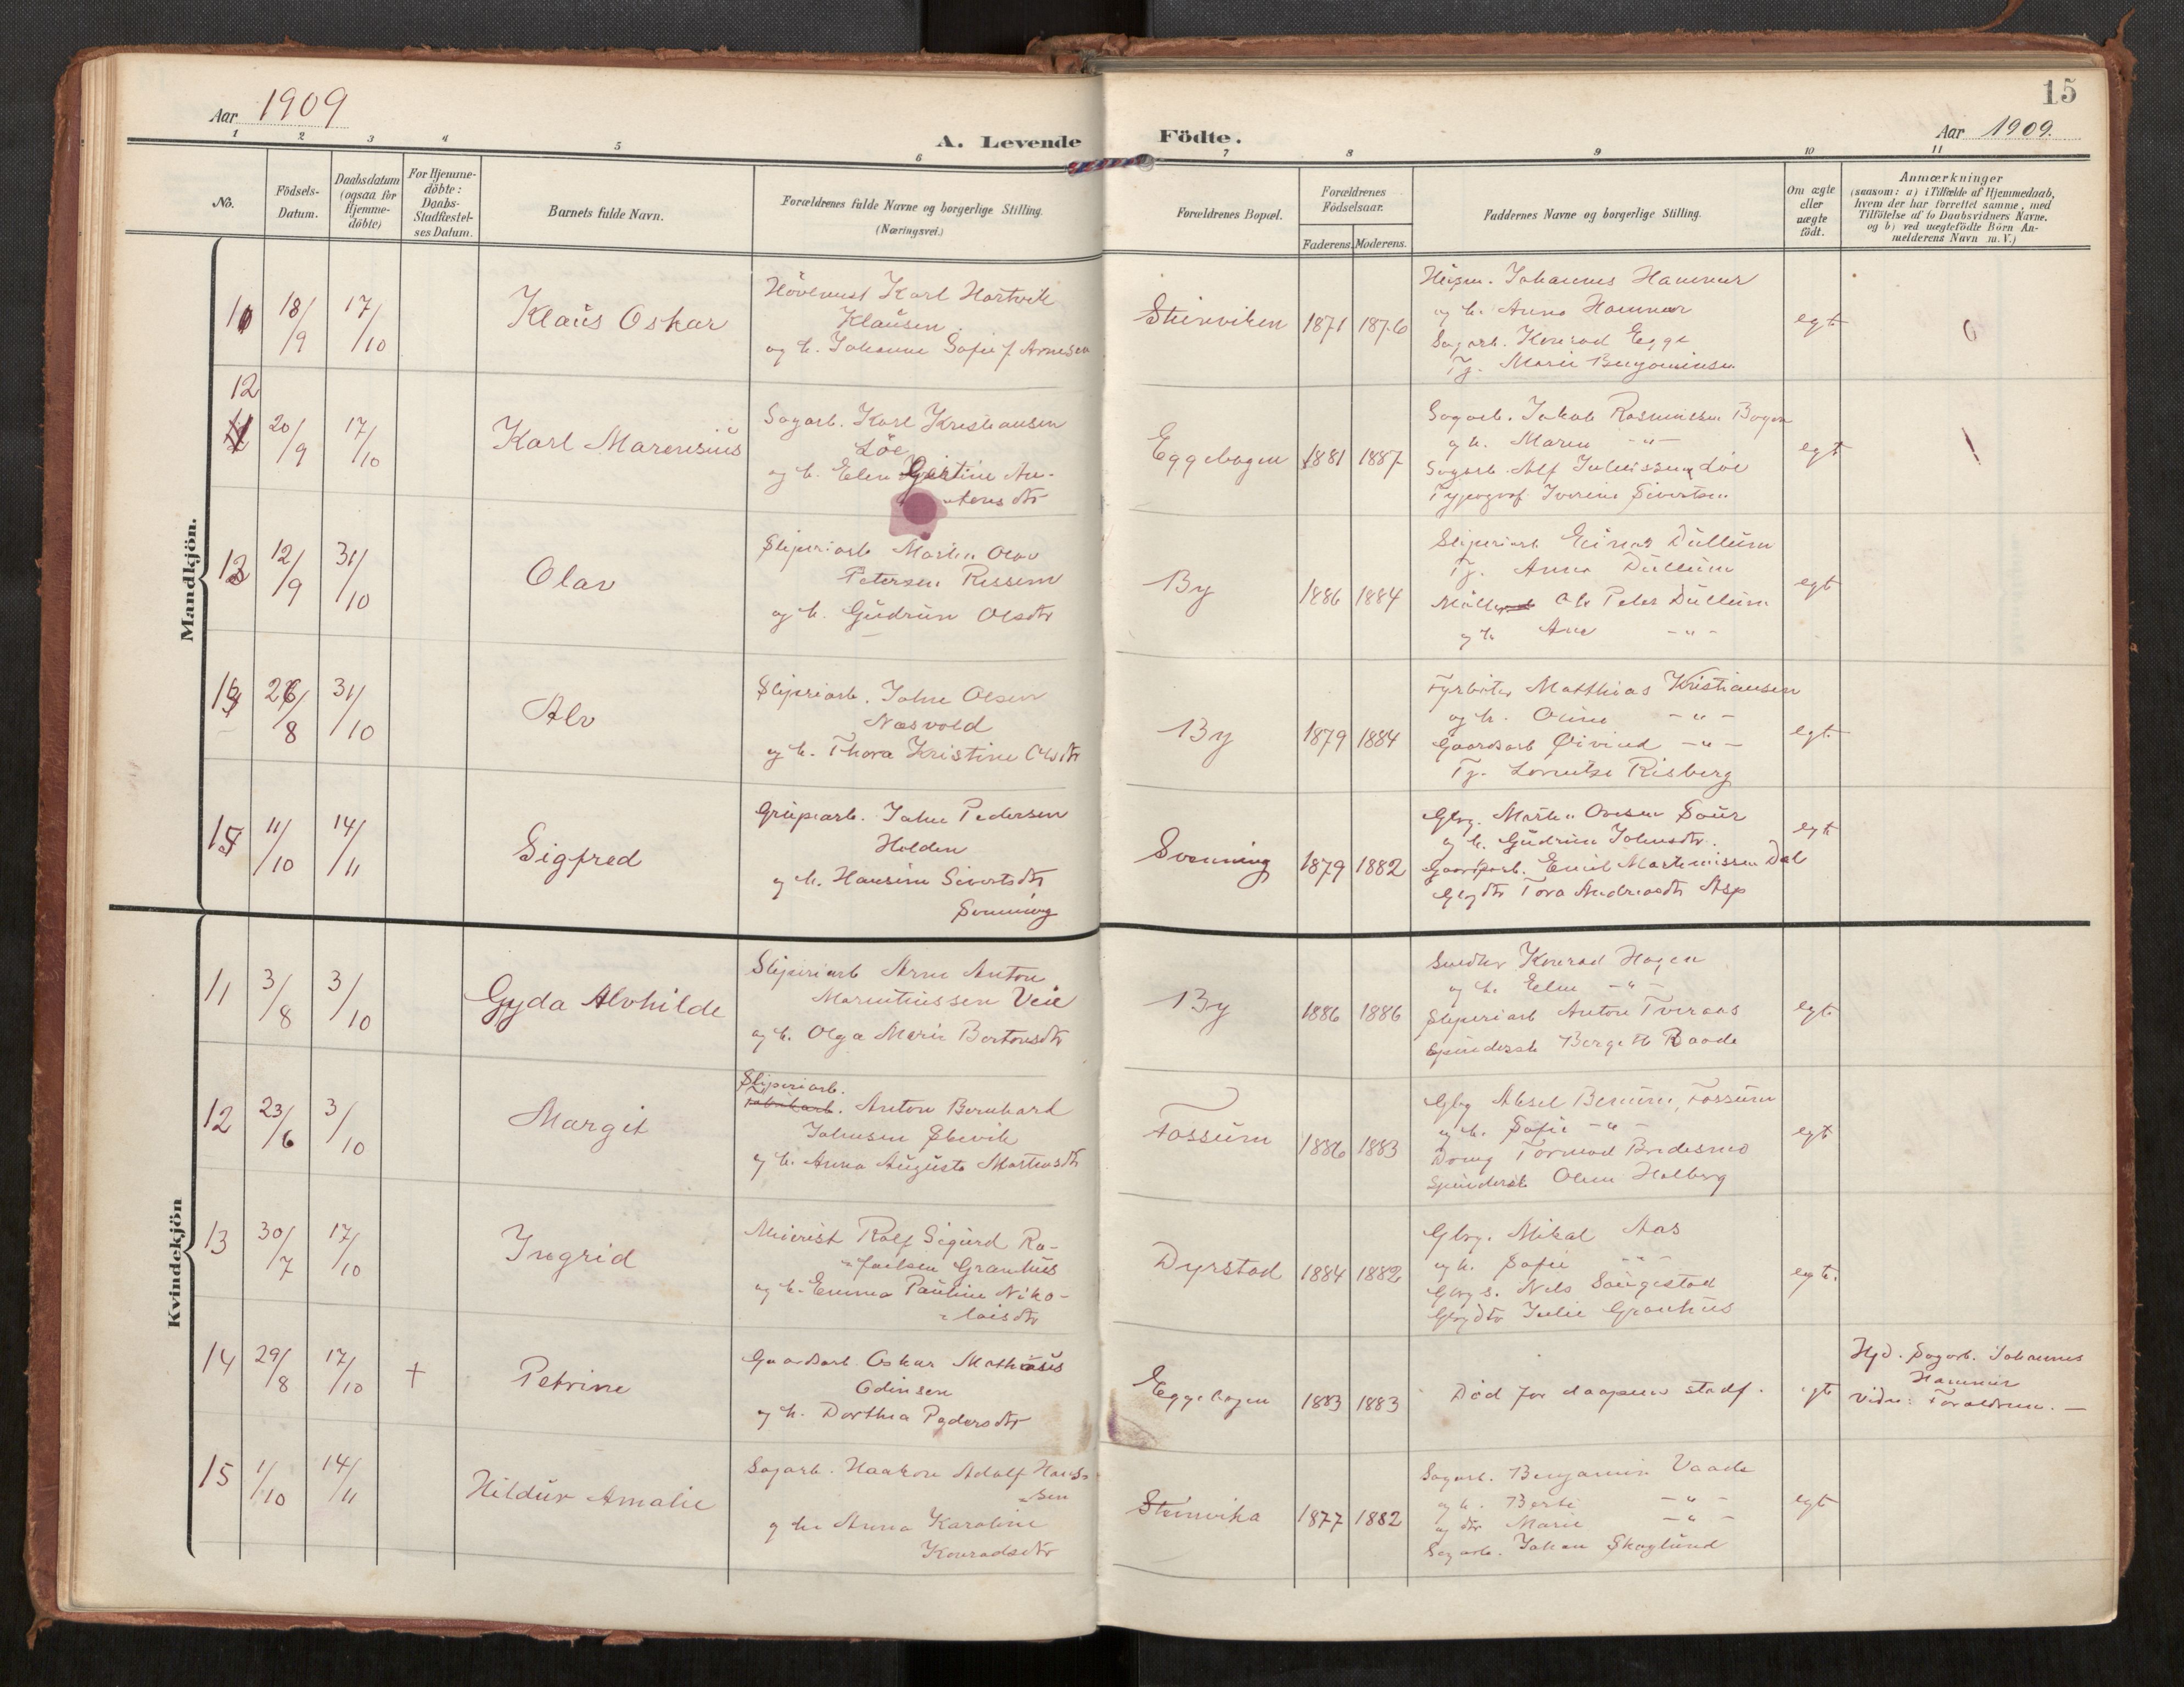 15
Aar 1909
A. Levende Födte.
Aar 1909.
1 2 3 4 5 6 7 8 9 10 11
No.
Födsels-
Datum.
Daabsdatum
(ogsaa for
Hjemme-
döbte)
For Hjemme-
döbte:
Daabs-
Stadfæstel-
ses Datum.
Barnets fulde Navn.
Forældrenes fulde Navne og borgerlige Stilling.
(Næringsvei.)
Forældrenes Bopæl.
Forældrenes
Födselsaar.
Faderens. Moderens.
Faddernes Navne og borgerlige Stilling.
Om ægte
eller
uægte
födt.
Anmærkninger
(saasom: a) i Tilfælde af Hjemmedaab,
hvem der har forrettet samme, med
Tilföielse af to Daabsvidners Navne,
og b) ved uægtefödte Börn An-
melderens Navn m. V.)
Mandkjön.
11 18/9 17/10
Klaus Oskar
Hövlemest Karl Hartvik
Klausen
og h. Johanne Sofie f. Arnesen
Steinviken 1871 1876
Johannes Hammer
og h. Anna Hammer
Sagarb. Konrad Egge
Tj. Marie Benjaminsen
egt
12 20/9 17/10
Karl Marensius
Sagarb. Karl Kristiansen
Löe
og h. Elen Gjertine An-
tonsdtr
Eggebogen 1881 1887
Sagarb. Jakob Rasmussen Bogen
og h. Maren -"-
Sagarb. Alf Juliussen Löe
Typograf Iverine Sivertsen
egt
13 12/9 31/10
Olav
Sliperiarb Martin Olav
Petersen Rissem
og h. Gudrun Olsdtr
By 1886 1884
Sliperiarb Einar Dullum
Tj. Anna Dullum
Möller Ole Peter Dullum
og h Ane -"-
egt
14 26/8 31/10
Alv
Sliperiarb. Johan Olsen
Næsvold
og h. Thora Kristine Olsdtr
By 1879 1884
Fyrböter Matthias Kristiansen
og h. Oline -"-
Gaardsarb Øivind -"-
Tj. Lorentse Risberg
egt.
15 11/10 14/11
Sigfred
Grubearb. Johan Pedersen
Holden
og h. Hansine Sivertsdtr
Svenning
Svenning 1879 1882
Gbrg. Martin Ovesen Saur
og h. Gudrun Johnsdtr.
Gaardsarb. Emil Martinussen Dal
Gbrgdtr Tora Andreasdtr Asp
egt
Kvindekjön
11 3/8 3/10
Gyda Alvhilde
Sliperiarb Arne Anton
Marentiussen Veie
og h. Olga Marie Bertonsdtr
By 1886 1886
Snedker Konrad Hagen
og h. Ellen -"-
Sliperiarb Anton Tveraas
Spinderske Bergitte Raade
egt.
12 23/6 3/10
Margit
Sliperiarb.
Fabrikarb. Anton Bernhard
Johnsen Slevik
og h. Anna Augusta Martinsdtr
Fossum 1886 1883
Gbrg Aksel Fossum
og h. Sofie -"-
Tormod Bredesmo
Spinderske Oline Holberg
egt
13 30/7 17/10
Ingrid
Meierist Rolf Sigurd Ra-
faelsen Granhus
og h. Emma Pauline Niko-
laisdtr
Dyrstad 1884 1882
Gbrg. Mikal Aas
og h. Sofie -"-
Gbrg s. Nils Saugestad
Gbrgdtr Julie Granhus
egt.
14 29/8 17/10 +
Petrine
Gaardsarb. Oskar Mathæus
Odinsen
og h. Dorthea Pedersdtr
Eggebogen 1883 1883
Död før daapens stadf.
egt
Hjd. Sagarb. Johannes
Hammer
Vidn: Forældrene. —
15 1/10 14/11
Hildur Amalie
Sagarb. Haakon Adolf Hans-
sen
og h. Anna Karoline
Konradsdtr
Steinvika 1877 1882
Sagarb. Benjamin Vaade
og h. Berte -"-
og dtr Marie -"-
Sagarb. Johan Skoglund
egt